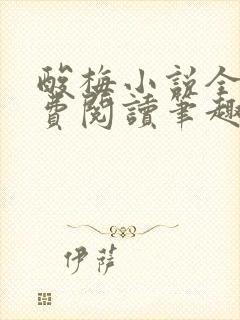 酸梅小説全
費閱讀筆趣
伊薩